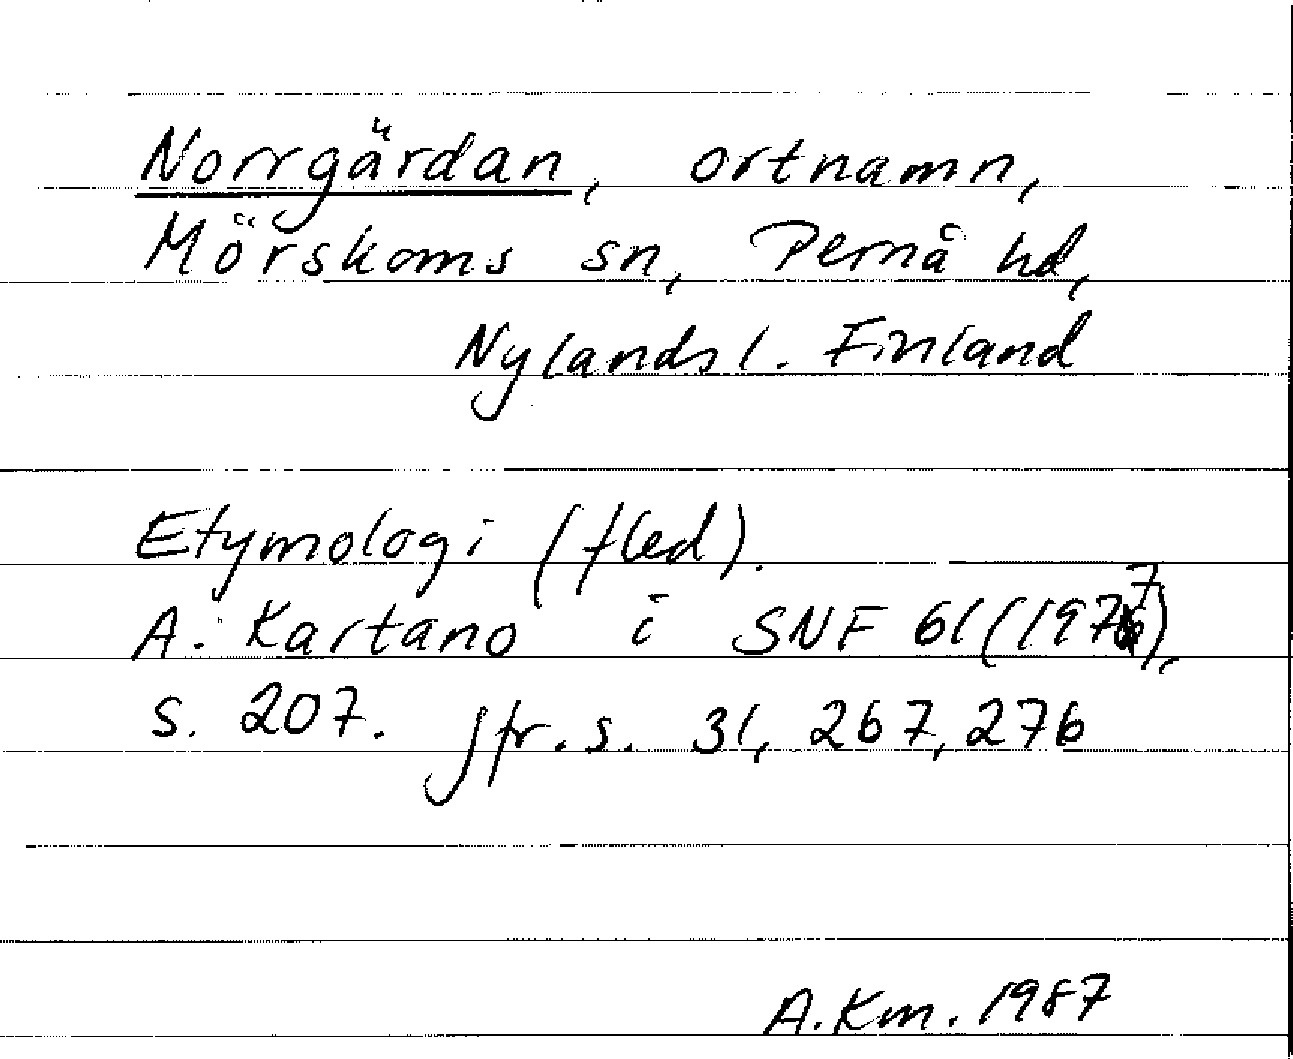 Norrgärdan, ortnamn,
Mörskoms sn, Pernå hd,
Nylands l. Finland
Etymologi (fled).
A. Kartano i SNF 61 (1977),
s. 207. Jfr. s. 31, 267, 276
A.Km. 1987